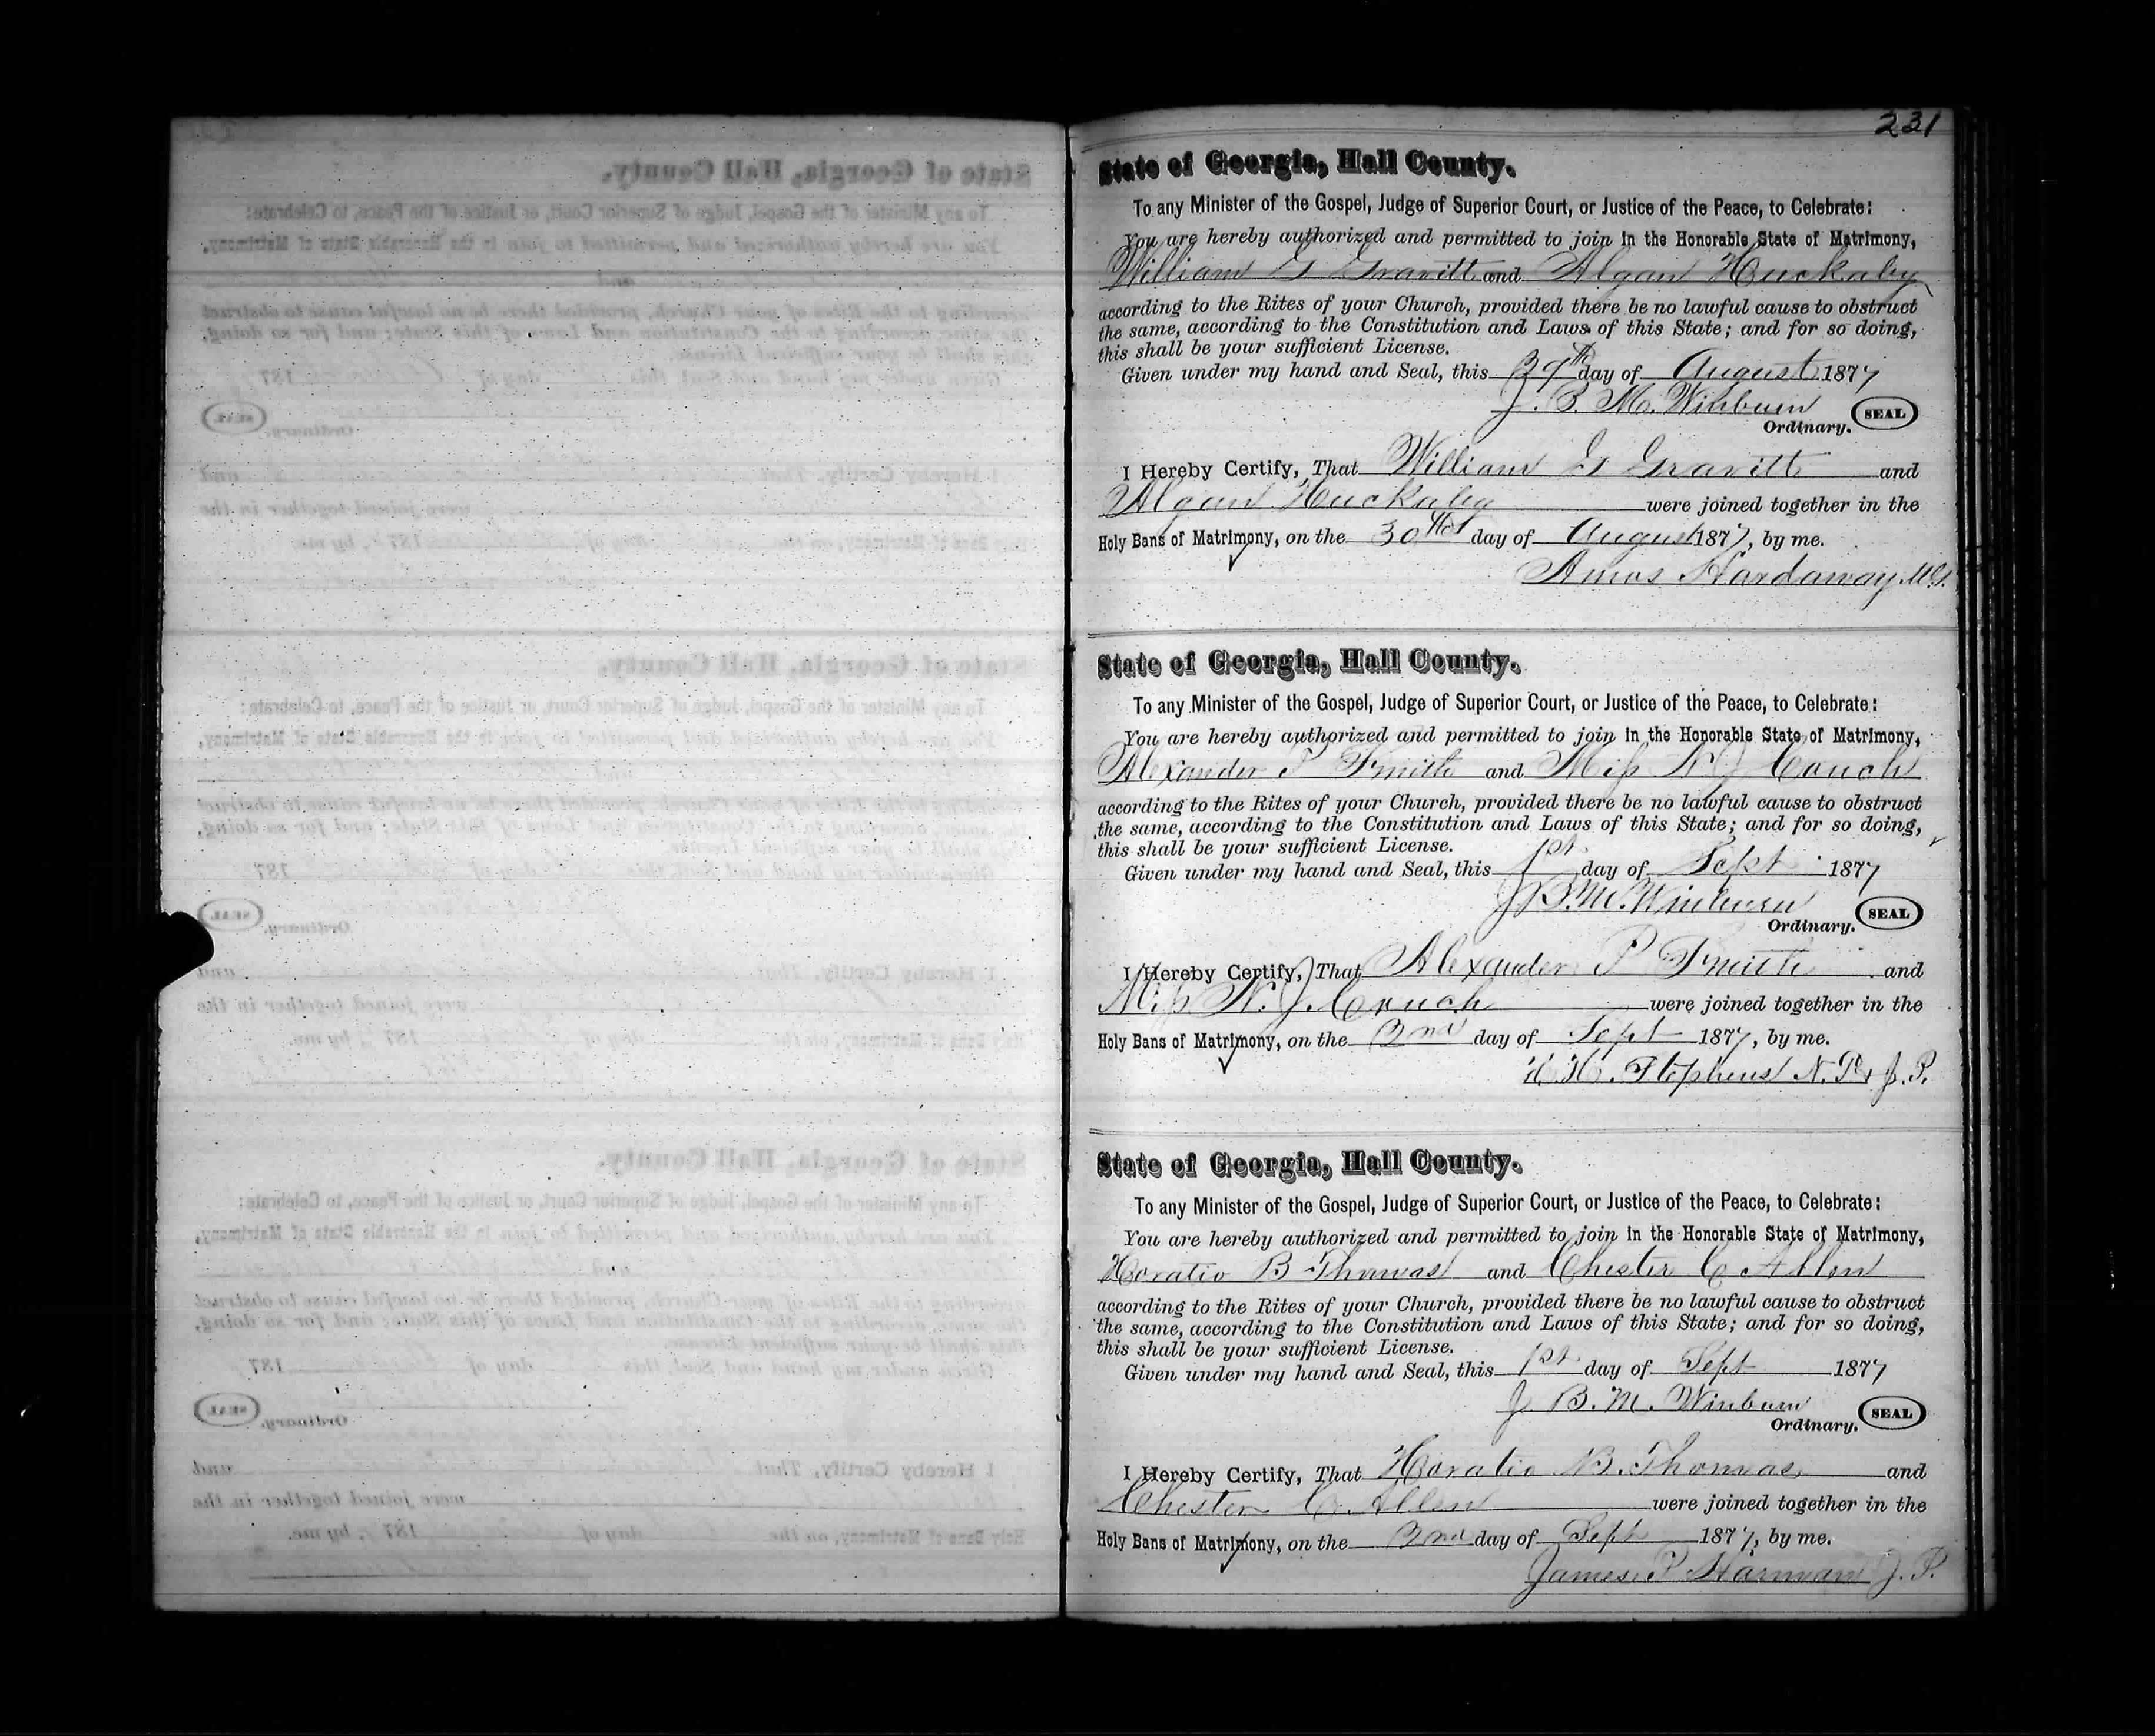 231
State of Georgia, Hall County.
To any Minister of the Gospel, Judge of Superior Court, or Justice of the Peace, to Celebrate:
You are hereby authorized and permitted to join in the Honorable State of Matrimony,
William G Gravitt and Algan Huckaby
according to the Rites of your Church, provided there be no lawful cause to obstruct
the same, according to the Constitution and Laws of this State; and for so doing,
this shall be your sufficient License.
Given under my hand and Seal, this 29th day of August 1877
J. B. M. Winburn SEAL
Ordinary.
I Hereby Certify, That William G Gravitt and
Algan Huckaby were joined together in the
Holy Bans of Matrimony, on the 30th day of August 1877, by me.
Amos Hardaway M.G.
State of Georgia, Hall County.
To any Minister of the Gospel, Judge of Superior Court, or Justice of the Peace, to Celebrate:
You are hereby authorized and permitted to join in the Honorable State of Matrimony,
Alexander P Smith and Miss N. J. Couch
according to the Rites of your Church, provided there be no lawful cause to obstruct
the same, according to the Constitution and Laws of this State; and for so doing,
this shall be your sufficient License.
Given under my hand and Seal, this 1st day of Sept 1877
J. B. M. Winburn SEAL
Ordinary.
I Hereby Certify, That Alexander P Smith and
Miss N. J. Couch were joined together in the
Holy Bans of Matrimony, on the 2nd day of Sept 1877, by me.
Stephens N. P. & J. P.
State of Georgia, Hall County.
To any Minister of the Gospel, Judge of Superior Court, or Justice of the Peace, to Celebrate:
You are hereby authorized and permitted to join in the Honorable State of Matrimony,
Horatio B Thomas and Chester C Allen
according to the Rites of your Church, provided there be no lawful cause to obstruct
the same, according to the Constitution and Laws of this State; and for so doing,
this shall be your sufficient License.
Given under my hand and Seal, this 1st day of Sept 1877
J. B. M. Winburn SEAL
Ordinary.
I Hereby Certify, That Horatio B. Thomas and
Chester C. Allen were joined together in the
Holy Bans of Matrimony, on the 2nd day of Sept 1877, by me.
James P Harman J. P.